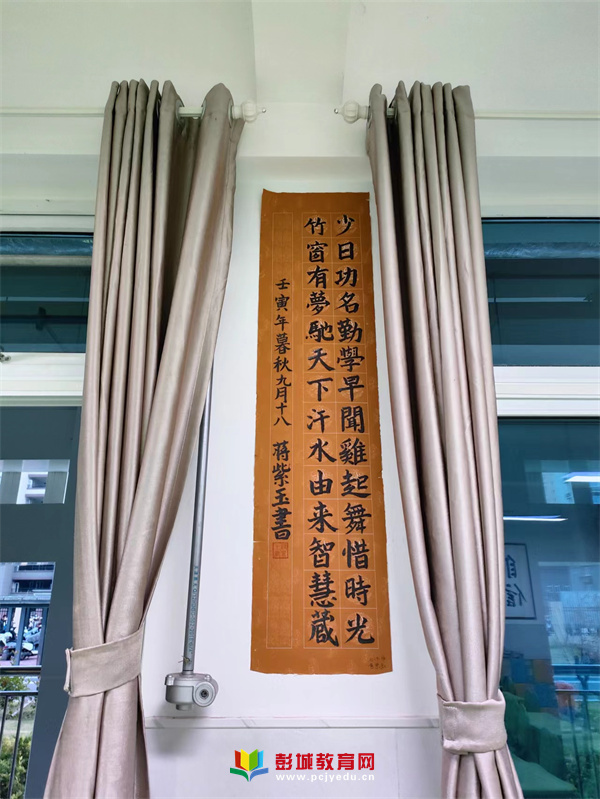 少日功名勤學早聞雞起舞惜時光
竹窗有夢馳天下汗水由来智慧蔵
壬寅年暮秋九月十八 蒋紫玉書
自信
彭城教育网
www.pcjyedu.cn